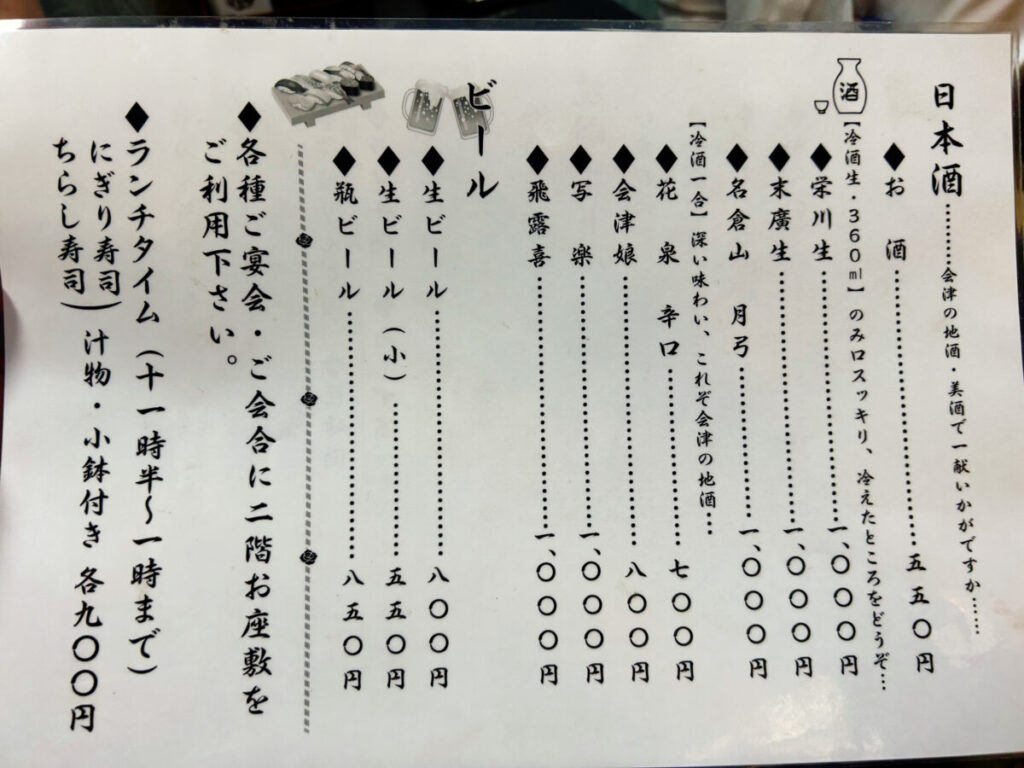 日本酒………会津の地酒・美酒で一献いかがですか……
◆お　酒……………………五五〇円
酒
【冷酒生・３６０㎖】のみ口スッキリ、冷えたところをどうぞ…
◆栄川生……………………一、〇〇〇円
◆末廣生……………………一、〇〇〇円
◆名倉山　月弓……………一、〇〇〇円
【冷酒一合】深い味わい、これぞ会津の地酒…
◆花　泉　辛口……………七〇〇円
◆会津娘……………………八〇〇円
◆写　楽……………………一、〇〇〇円
◆飛露喜……………………一、〇〇〇円
ビール
◆生ビール…………………八〇〇円
◆生ビール（小）…………五五〇円
◆瓶ビール…………………八五〇円
◆各種ご宴会・ご会合に二階お座敷を
ご利用下さい。
◆ランチタイム（十一時半～一時まで）
にぎり寿司
ちらし寿司）汁物・小鉢付き　各九〇〇円